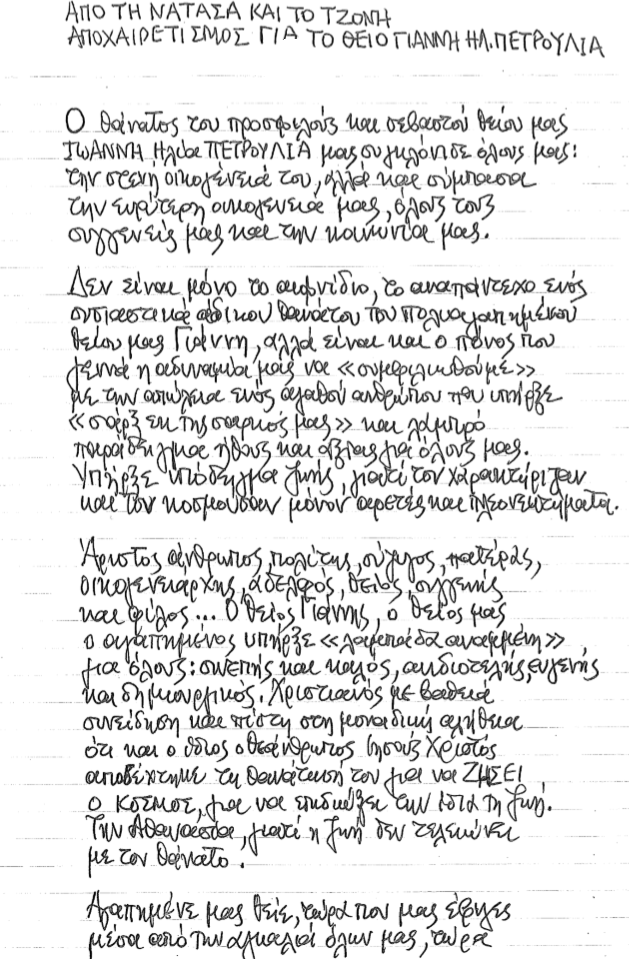 ΑΠΟ ΤΗ ΝΑΤΑΣΑ ΚΑΙ ΤΟ ΤΖΟΝΗ
ΑΠΟΧΑΙΡΕΤΙΣΜΟΣ ΓΙΑ ΤΟ ΘΕΙΟ ΓΙΑΝΝΗ ΗΛ. ΠΕΤΡΟΥΛΙΑ
Ο θάνατος του προσφιλούς και σεβαστού θείου μας
ΙΩΑΝΝΗ Ηλία ΠΕΤΡΟΥΛΙΑ μας συγκλόνισε όλους μας:
την στενη οικογένειά του, αλλά και σύμπασα
την ευρύτερη οικογενεια μας, όλους τους
συγγενείς μας και την κοινωνία μας.
Δεν είναι μόνο το αιφνίδιο, το αναπάντεχο ενός
ουσιαστικά αδίκου θανάτου του πολυαγαπημένου
θείου μας Γιάννη, αλλά είναι και ο πόνος που
γεννά η αδυναμία μας να «συμφιλιωθούμε»
με την απώλεια ενός αγαθού ανθρώπου που υπήρξε
«σάρξ εκ της σαρκός μας» και λαμπρό
παράδειγμα ήθους και αξίας για όλους μας.
Υπήρξε υπόδειγμα ζωής, γιατί τον χαρακτήριζαν
και τον κοσμούσαν μόνον αρετές και πλεονεκτήματα.
Άριστος άνθρωπος, πολίτης, σύζυγος, πατέρας,
οικογενειάρχης, αδελφός, θείος, συγγενής
και φίλος... Ο θείος Γιάννης, ο θείος μας
ο αγαπημένος υπήρξε «λαμπάδα αναμμένη»
για όλους: συνεπής και καλός, ανιδιοτελής, ευγενής
και δημιουργικός. Χριστιανός με βαθειά
συνείδηση και πίστη στη μοναδική αλήθεια
ότι και ο ίδιος ο θεάνθρωπος Ιησούς Χριστός
αποδέχτηκε τη θανάτωσή του για να ΖΗΣΕΙ
Ο ΚΟΣΜΟΣ, για να επιδιώξει την ίδια τη ζωή.
Την Αθανασία, γιατί η ζωή δεν τελειώνει
με τον θάνατο.
Αγαπημένε μας θείε, τώρα που μας έφυγες
μέσα από την αγκαλιά όλων μας, τώρα